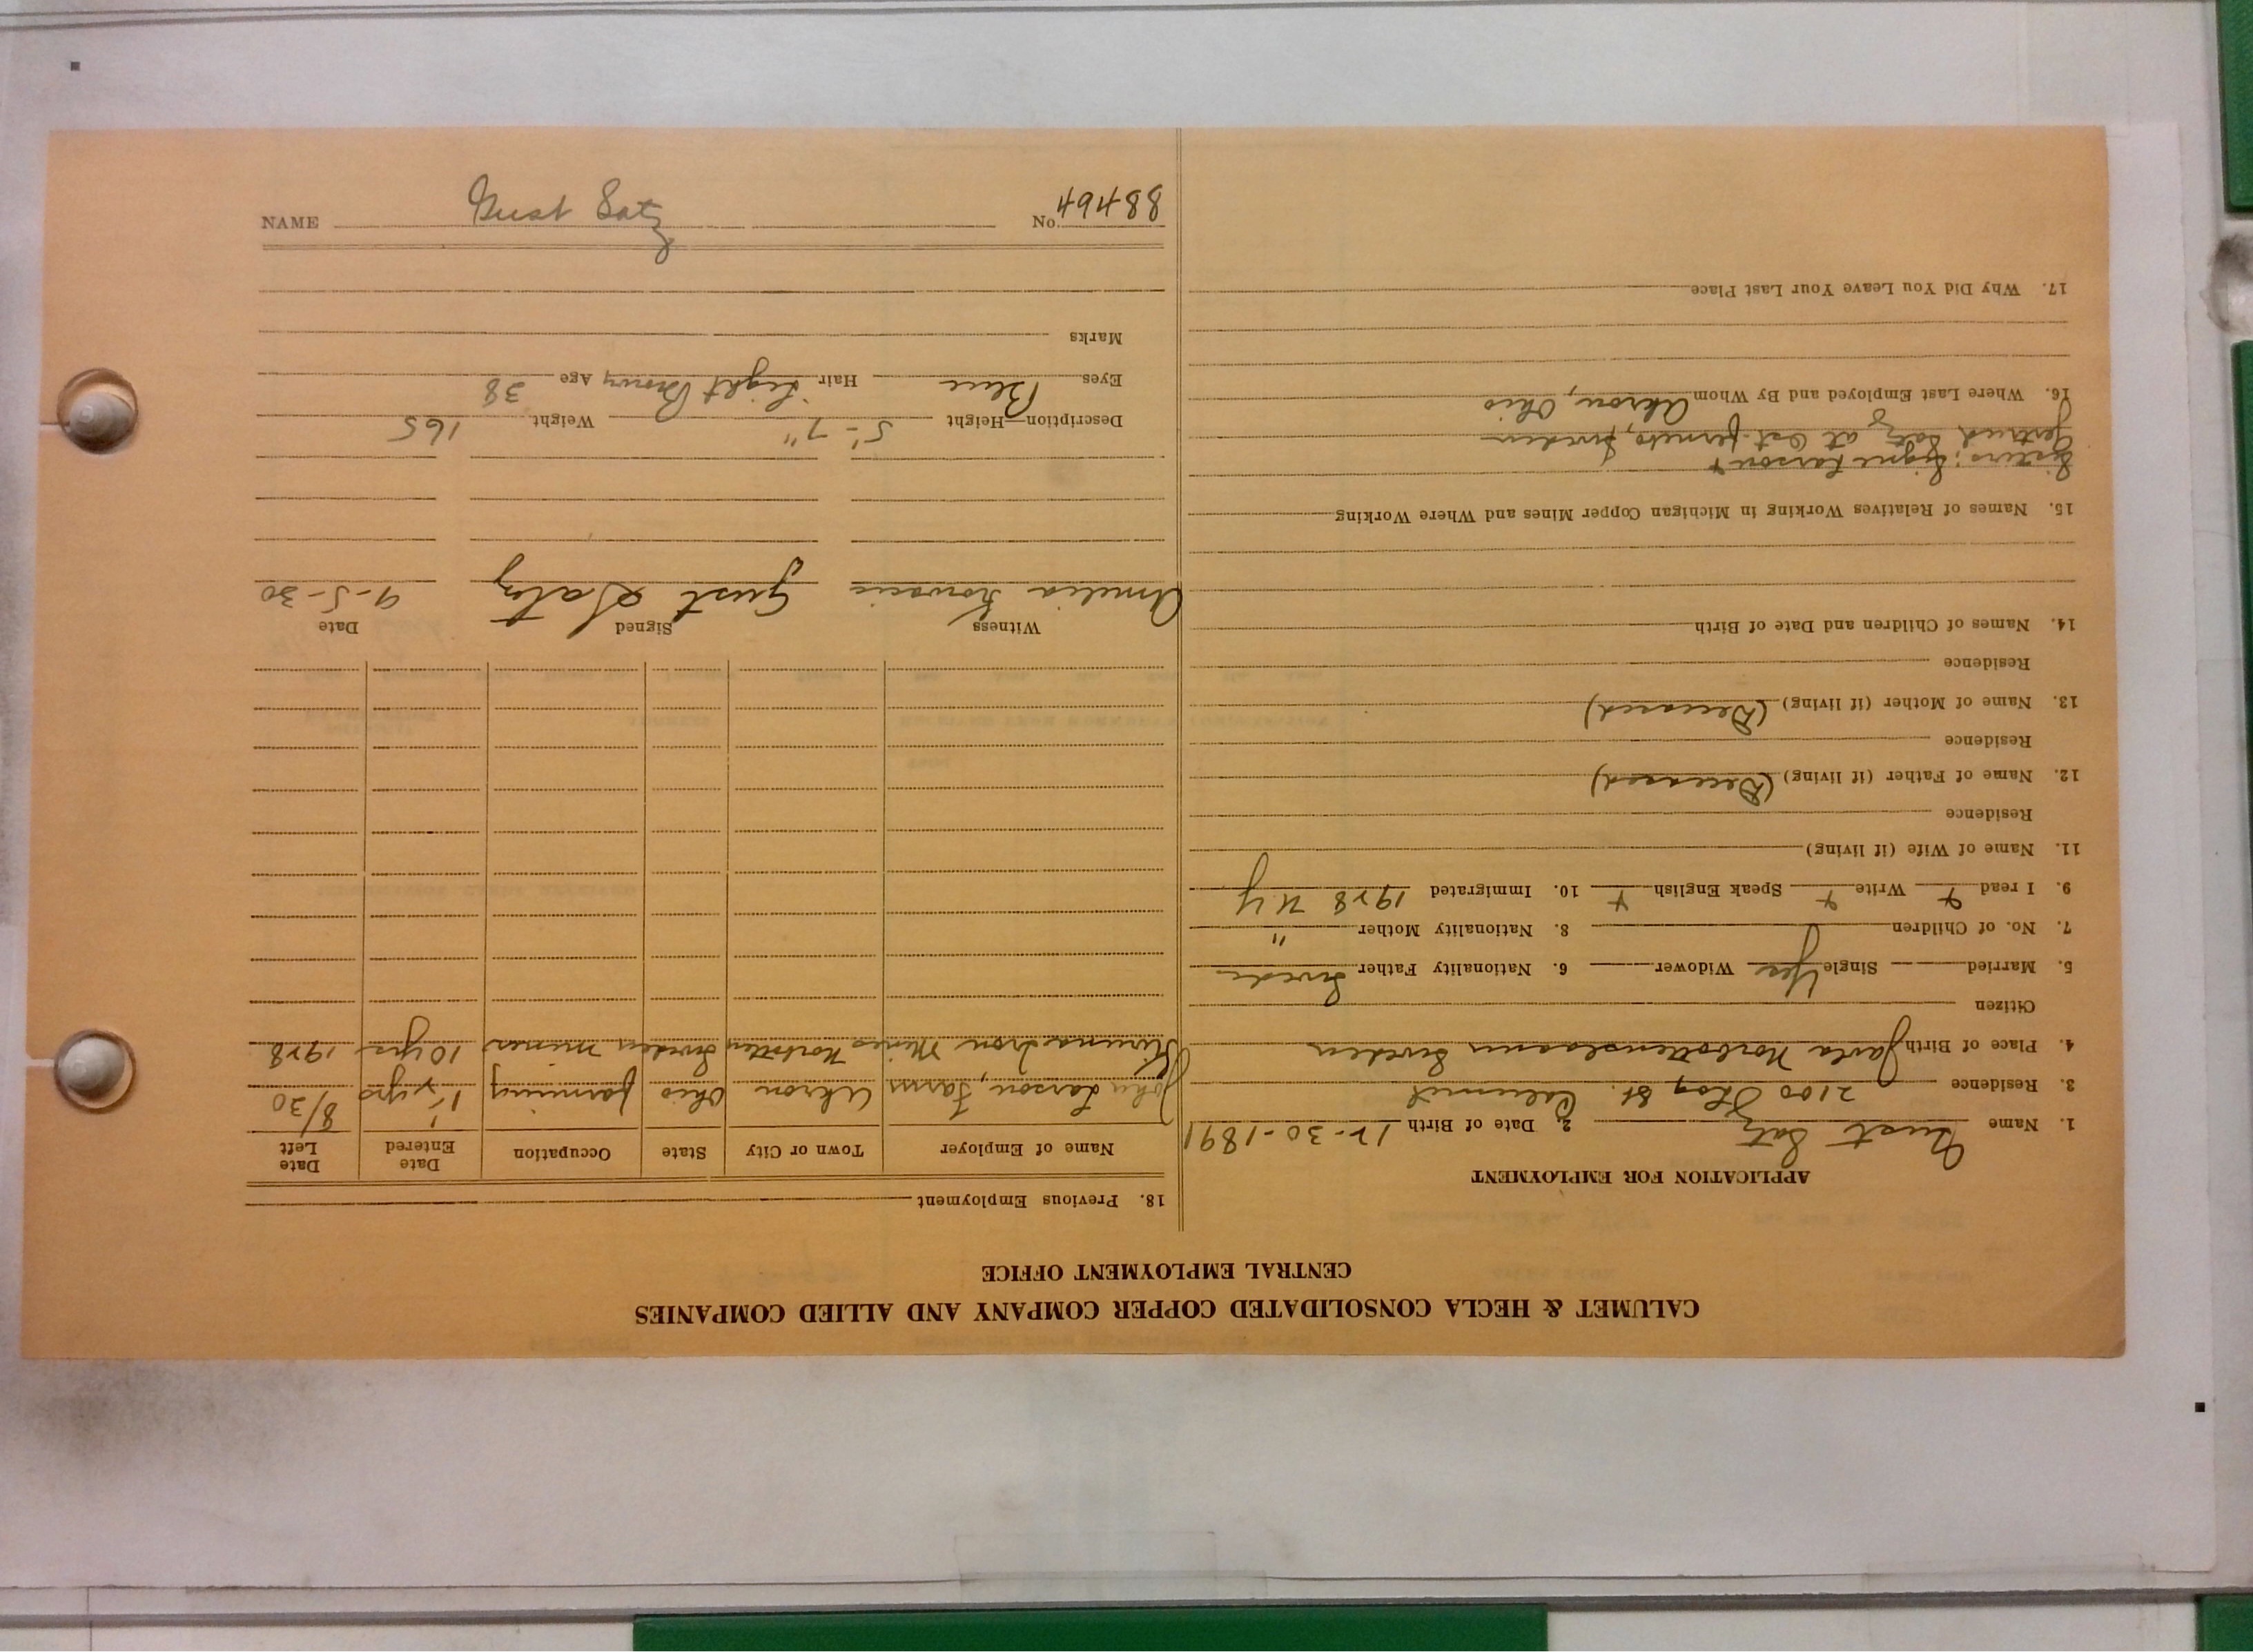 CALUMET & HECLA CONSOLIDATED COPPER COMPANY AND ALLIED COMPANIES
CENTRAL EMPLOYMENT OFFICE
APPLICATION FOR EMPLOYMENT
1. Name Gust Satz 2. Date of Birth 12-30-1891
3. Residence 2100 St. Calumet
4. Place of Birth Norbottenslaann Sweden
Citizen
5. Married Single Yes Widower 6. Nationality Father Sweden
7. No. of Children 8. Nationality Mother "
9. I read + Write + Speak English + 10. Immigrated 1928 N.Y
11. Name of Wife (if living)
Residence
12. Name of Father (if living) (Deceased)
Residence
13. Name of Mother (if living) (Deceased)
Residence
14. Names of Children and Date of Birth
15. Names of Relatives Working in Michigan Copper Mines and Where Working
Sisters: Signe Larson +
Gertrud Satz at Sweden
16. Where Last Employed and By Whom Akron, Ohio
17. Why Did You Leave Your Last Place
18. Previous Employment
Name of Employer Town or City State Occupation Date Entered Date Left
John Larson, Farm Akron Ohio farming 1½ yrs 8/30
Kiruna Iron Mines Norbotten Sweden miner 10 yrs 1928
Witness Signed Date
Amelia Gust Satz 9-5-30
Description—Height 5'-7" Weight 165
Eyes Blue Hair Light Brown Age 38
Marks
NAME Gust Satz No. 49488